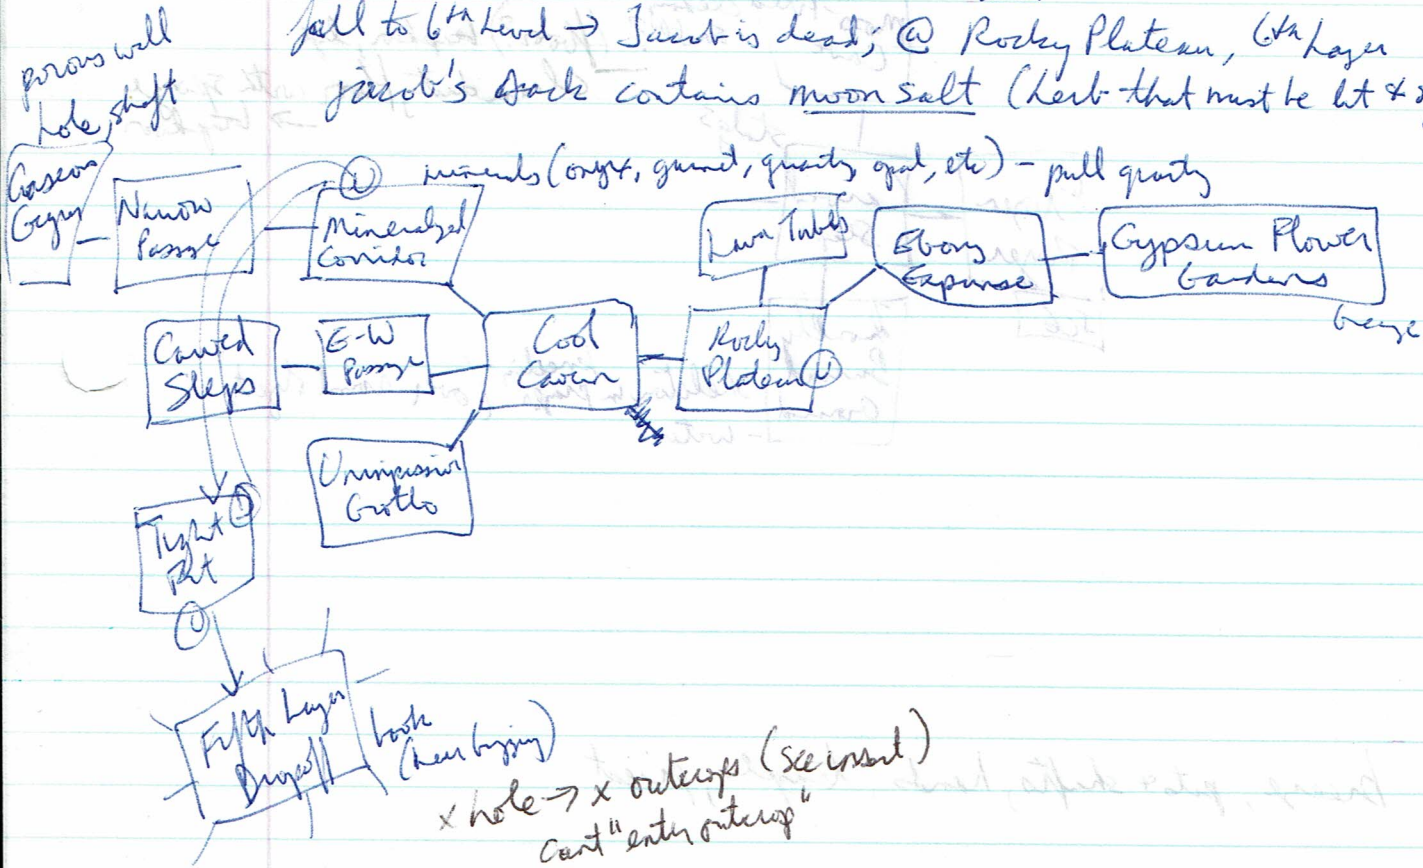 fall to 6th Level → Jacob is dead; @ Rocky Plateau, 6th Layer
Jacob's sack contains moon salt (herb that must be lit &
porous wall
hole, shaft
U minerals (onyx, garnet, quartz, opal, etc) - pull quartz
Gaseous
Narrow
Passage
Mineralized
Corridor
Lava Tubes
Ebony
Expanse
Gypsum Flower
Gardens
Carved
Steps
E-W
Passage
Cool
Cavern
Rocky
Plateau U
Grotto
Tight
Pit
Fifth Layer
Dropoff
book
(hear buzzing)
x hole → x outcrops
can't "enter outcrop"